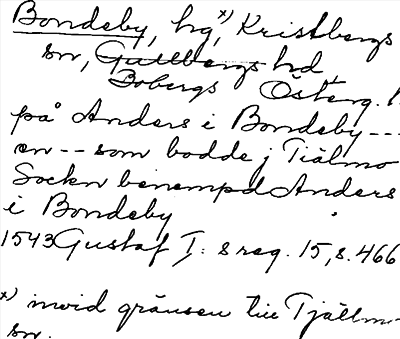 Bondeby, hg x), Kristbergs
sn, Gullbergs hd
Bobergs Österg. l.
på Anders i Bondeby ---
en -- som bodde j Tiälmo
Sockn benempd Anders
i Bondeby
1543 Gustaf I:s reg. 15, s. 466
x) invid gränsen till Tjällmo
sn.